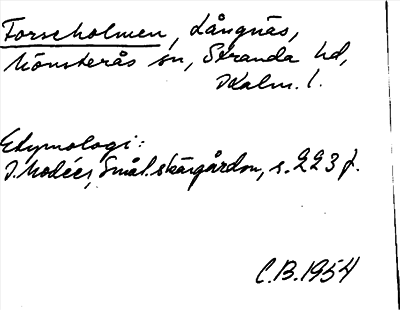 Forseholmen, Långnäs,
Mönsterås sn, Stranda hd,
Kalm. l.
Etymologi:
I. Modéer, Smål. skärgårdsn, s. 223 f.
C.B. 1954